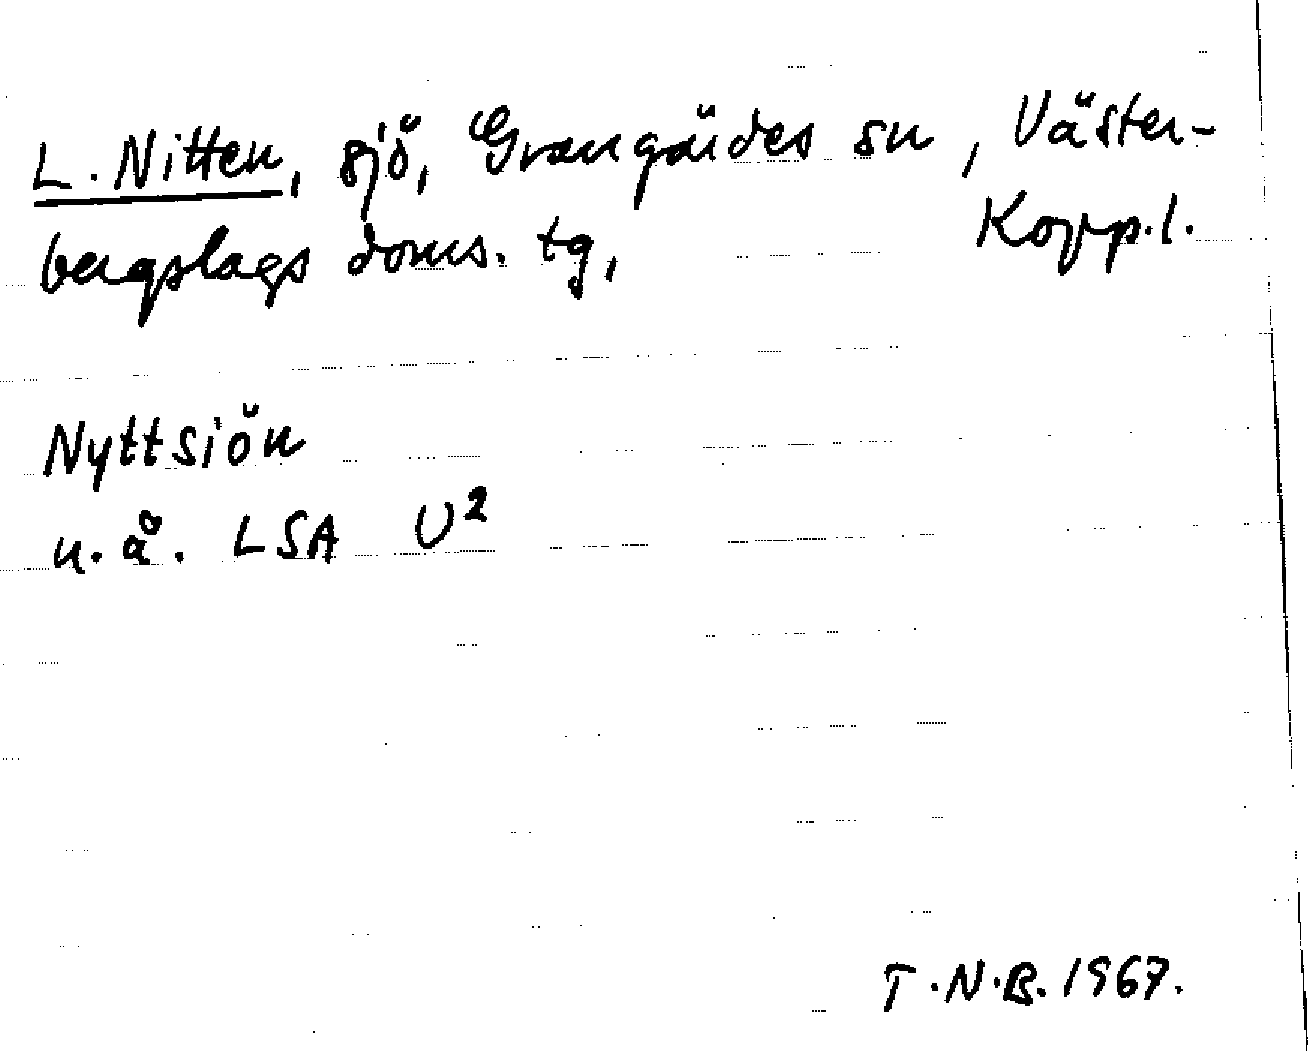 L. Nitten, sjö, Grangärdes sn, Väster-
bergslags doms. tg, Kopp.l.
Nyttsiön
u.å. LSA U²
T.N.B. 1967.